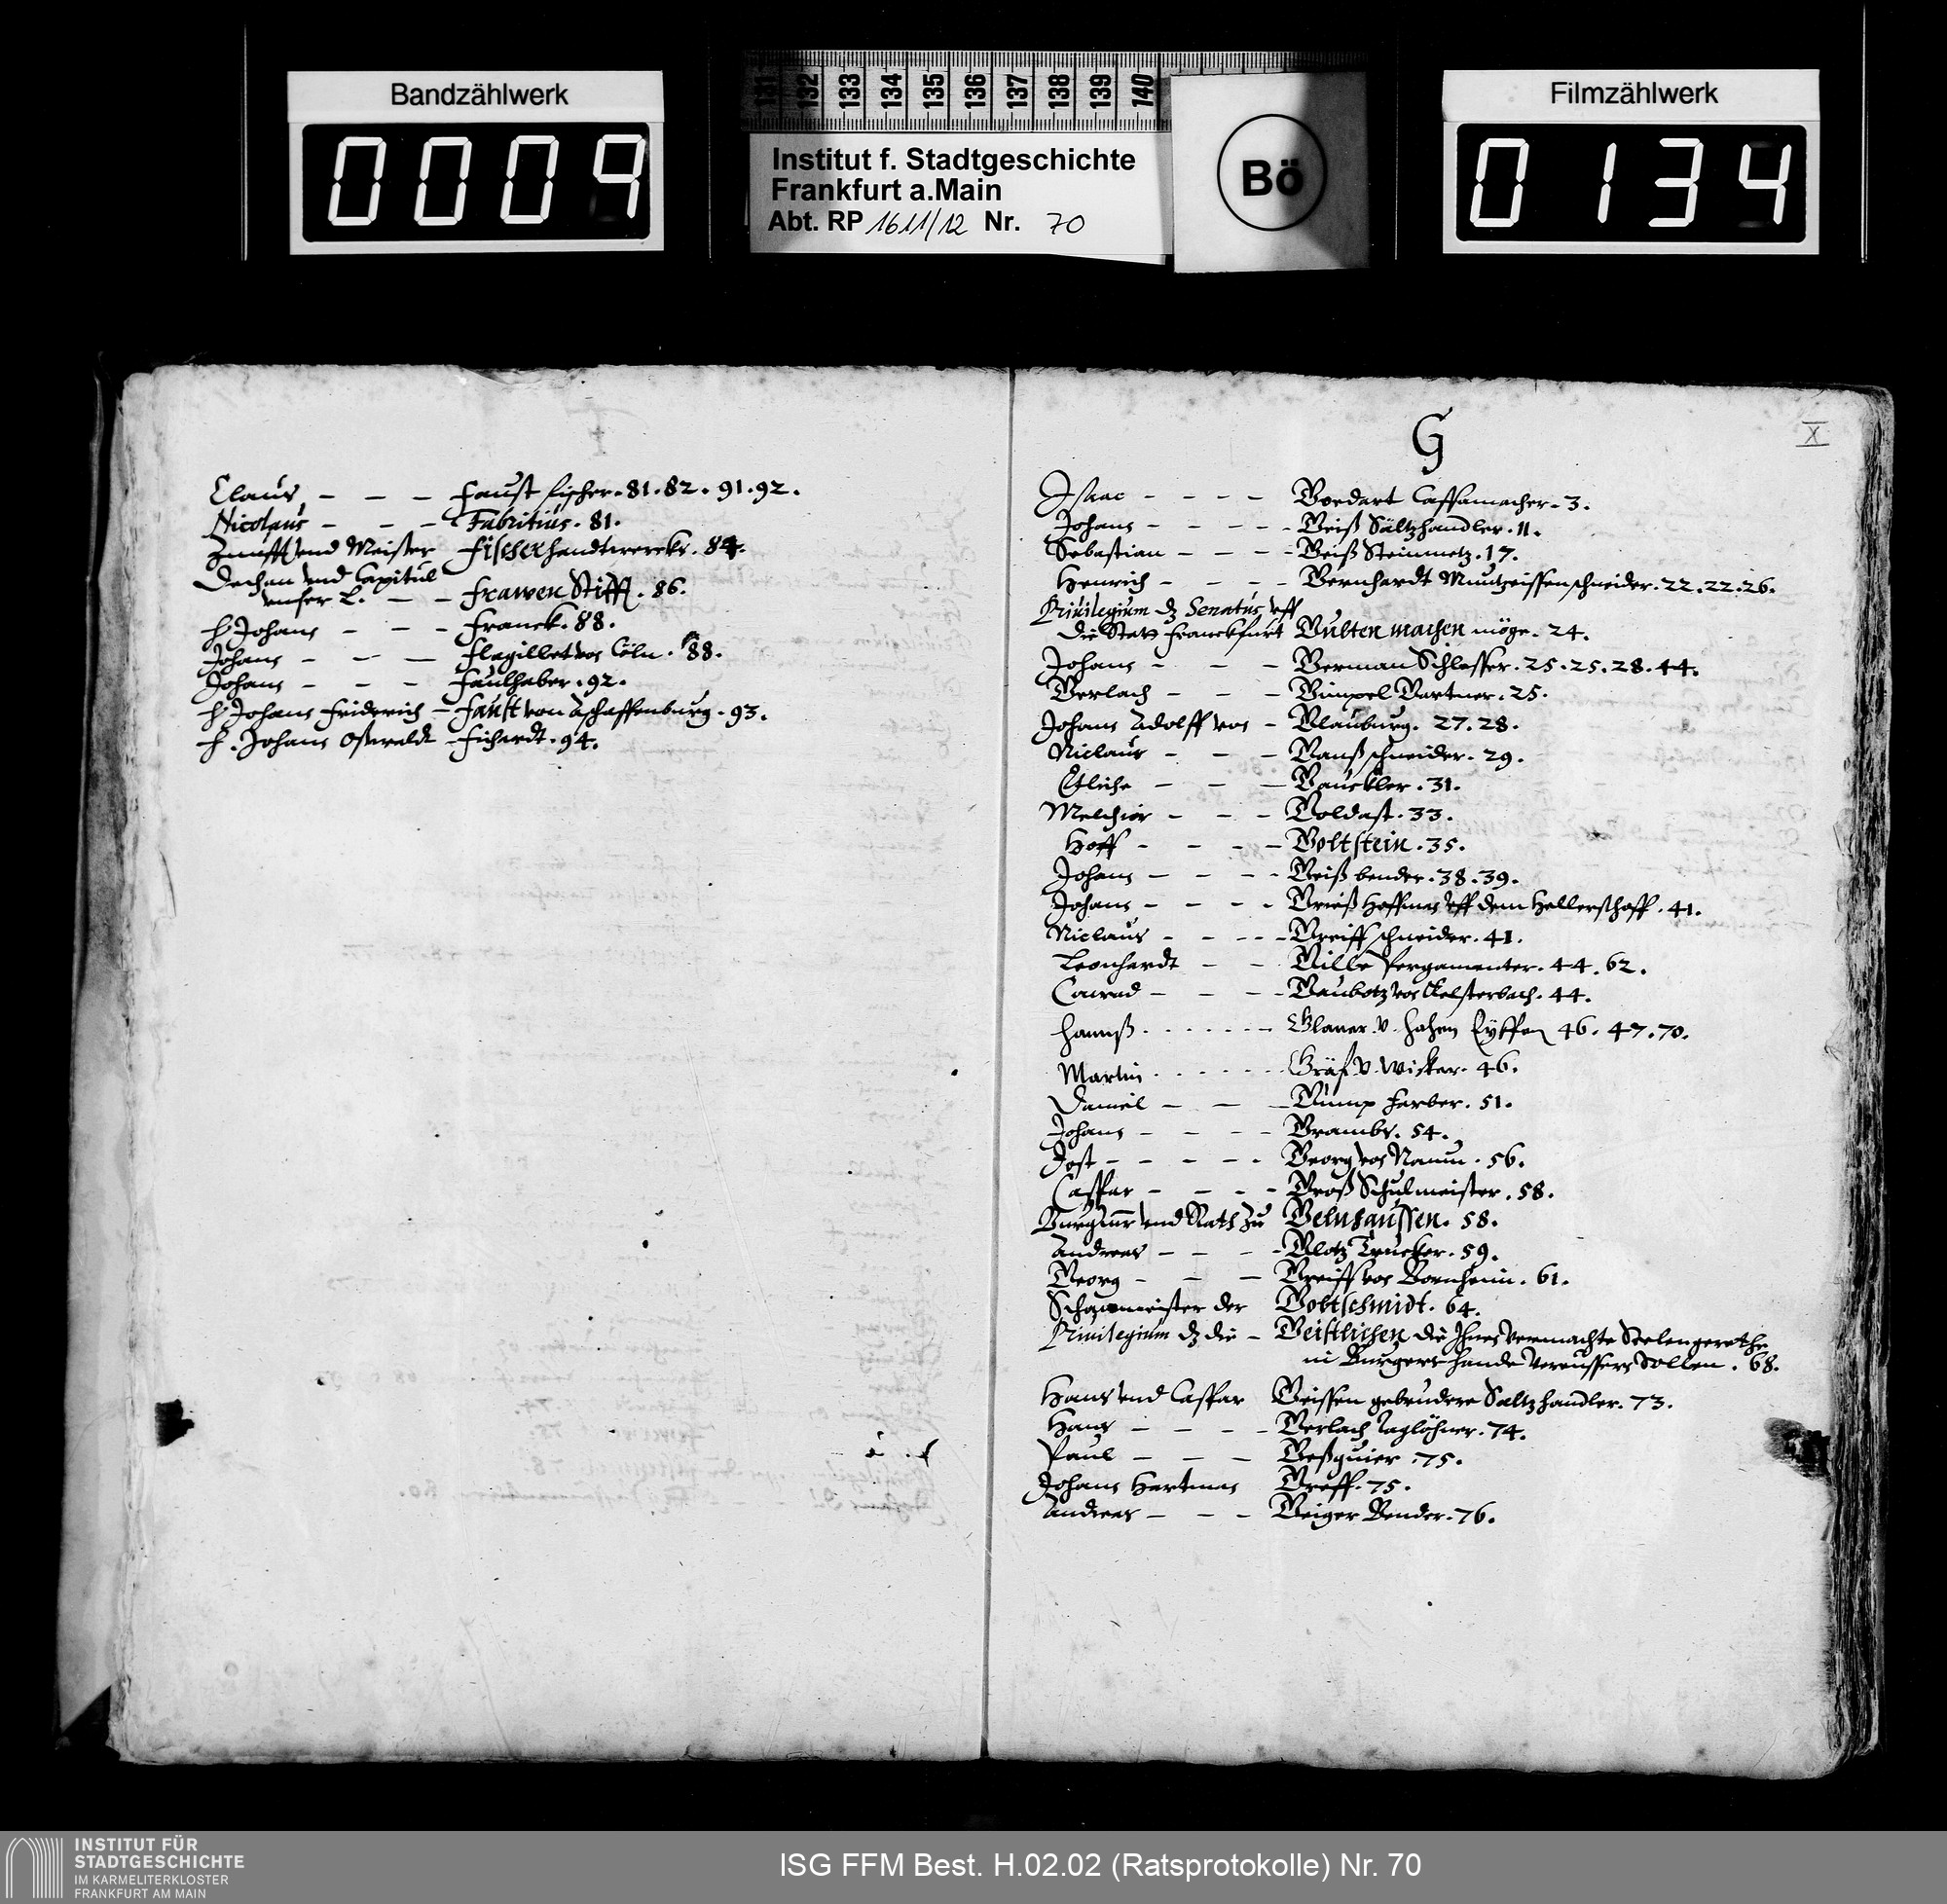 Bandzählwerk
0009
131 132 133 134 135 136 137 138 139 140
Institut f. Stadtgeschichte
Frankfurt a.Main
Abt. RP 1611/12 Nr. 70
Bö
Filmzählwerk
0134
Claus – – – Faust fischer. 81. 82. 91. 92.
Nicolaus – – – Fabritius. 81.
Zunfft vnd Meister Fischerhandtwercks. 84.
Dechan vnd Capitul
vnser L. – – Frawen Stifft. 86.
H Johans – – – Franck. 88.
Johans – – – Flagillet von Cöln. 88.
Johans – – – Faulhaber. 92.
H Johans Friderich – Faust von Aschaffenburg. 93.
H. Johans Oswaldt Fichardt. 94.
G
X
Isaac – – – – Goedart Caffamacher. 3.
Johans – – – – Geiß Saltzhandler. 11.
Sebastian – – – – Geiß Steinmetz. 17.
Henrich – – – – Gernhardt Muntzeissenschneider. 22. 22. 26.
Priuilegium dz Senatus vff
die Statt Franckfurt Gulten machen möge. 24.
Johans – – – German Schlosser. 25. 25. 28. 44.
Gerlach – – – Gimpel Gartner. 25.
Johans Adolff von – Glauburg. 27. 28.
Niclaus – – – Ganß schneider. 29.
Etliche – – – Gauckler. 31.
Melchior – – – Goldast. 33.
Hoff – – – – Goltstein. 35.
Johans – – – – Geiß bender. 38. 39.
Johans – – – – Grieß Hoffman vff dem Hellerhoff. 41.
Niclaus – – – – Greiff schneider. 41.
Leonhardt – – Gille Pergamenter. 44. 62.
Conrad – – – – Gaubotz von Kelsterbach. 44.
Hannß . . . . . . Glaner v. Hohen 46. 47. 70.
Martin . . . . . . Gräf v. Wicker. 46.
Daniel – – – Gump Farber. 51.
Johans – – – – Grambs. 54.
Jost – – – – – Georg von Namu. 56.
Caspar – – – – Groß Schulmeister. 58.
Burgmr vnd Rath zu Gelnhaussen. 58.
Andreas – – – – Glotz Trucker. 59.
Georg – – – Greiff von Bornheim. 61.
Schawmeister der Goltschmidt. 64.
Priuilegium dz die – Geistlichen die Ihnen vermachte Seelengerethe
in Burgers hande vereussern sollen. 68.
Hans vnd Caspar Geissen gebrudere Saltzhandler. 73.
Hans – – – – Gerlach Taglöhner. 74.
Paul – – – Geßguier. 75.
Johans Hartman Greff. 75.
Andreas – – – Geiger Bender. 76.
INSTITUT FÜR
STADTGESCHICHTE
IM KARMELITERKLOSTER
FRANKFURT AM MAIN
ISG FFM Best. H.02.02 (Ratsprotokolle) Nr. 70